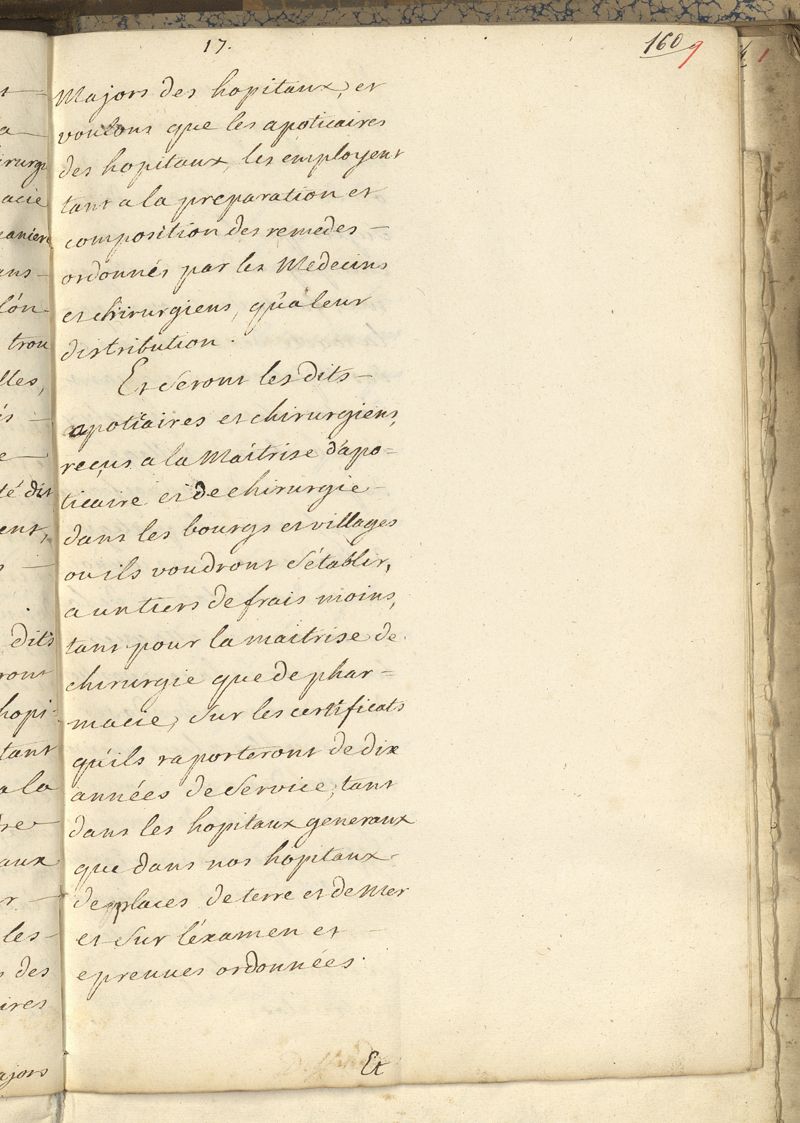 17.
160 9
Majors des hopitaux, et
voulons que les apoticaires
des hopitaux, les employent
tant a la preparation et
composition des remedes —
ordonnés par les Medecins
et chirurgiens, qu'a leur
distribution.
Et seront les dits —
apotiaires et chirurgiens,
reçus a la Maitrise d'apo=
ticaire et de chirurgie —
dans les bourgs et villages
ou ils voudront s'établir,
a un tiers de frais moins,
tant pour la maitrise de
chirurgie que de phar=
macie, sur les certificats
qu'ils raporteront de dix
années de service, tant
dans les hopitaux generaux
que dans nos hôpitaux
de places de terre et de Mer
et sur l'éxamen et —
epreuves ordonnées.
Et